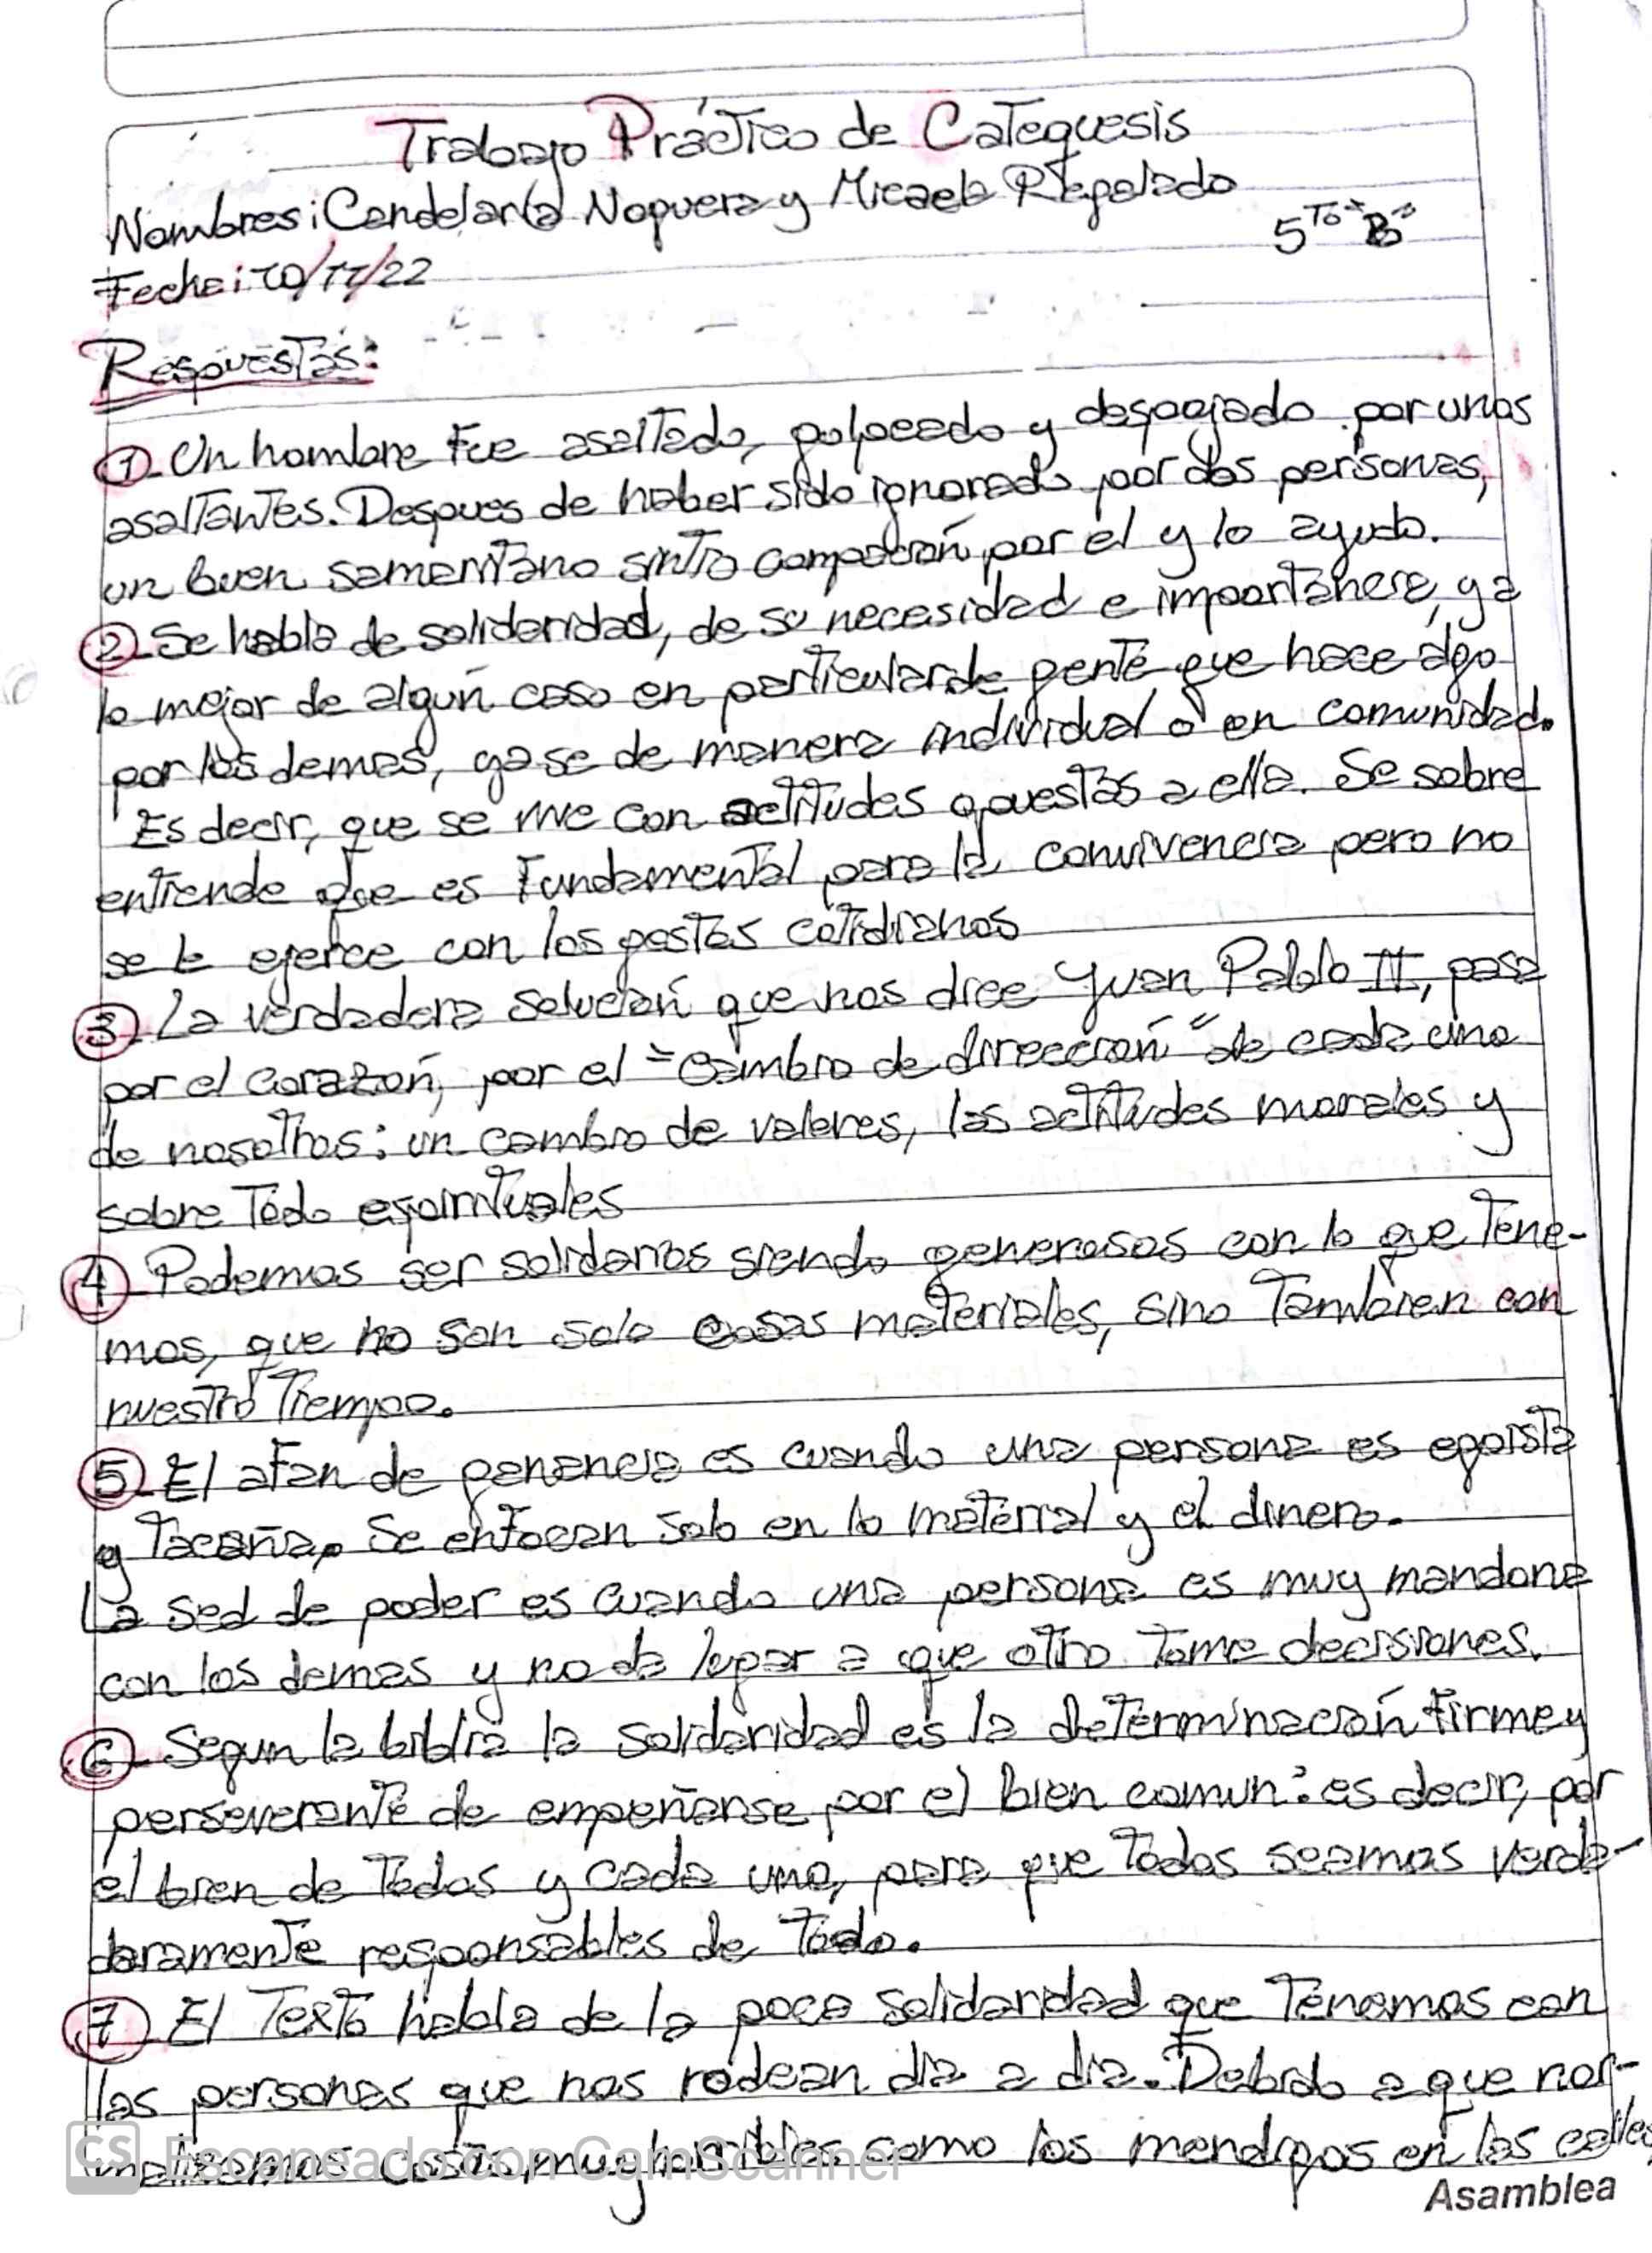 Trabajo Práctico de Catequesis
Nombres: Candelaria Noguera y Micaela Regalado
5to "B"
Fecha: 10/11/22
Respuestas:
1 Un hombre fue asaltado, golpeado y despojado por unos
asaltantes. Despues de haber sido ignorado por dos personas,
un buen samaritano sintio compación por él y lo ayudo.
2 Se habla de solidaridad, de su necesidad e importancia, ya
lo mejor de algún caso en particular de gente que hace algo
por los demas, ya se de manera individual o en comunidad.
Es decir, que se vive con actitudes opuestas a ella. Se sobre
entiende que es fundamental para la convivencia pero no
se le ejerce con los gestos cotidianos
3 La verdadera solución que nos dice Juan Pablo II, pasa
por el corazón, por el "cambio de dirección" de cada uno
de nosotros: un cambio de valores, las actitudes morales y
sobre todo espirituales
4 Podemos ser solidarios siendo generosos con lo que tene-
mos, que no son solo cosas materiales, sino tambien con
nuestro tiempo.
5 El afan de ganancia es cuando una persona es egoista
y tacaña, se enfocan solo en lo material y el dinero.
La sed de poder es cuando una persona es muy mandona
con los demas y no da lugar a que otro tome decisiones.
6 Segun la biblia la solidaridad es la determinación firme y
perseverante de empeñarse por el bien comun: es decir, por
el bien de todos y cada uno, para que todos seamos verda-
daramente responsables de todo.
7 El texto habla de la poca solidaridad que tenemos con
las personas que nos rodean dia a dia. Debido a que nor-
malizamos cosas muy horribles como los mendigos en las calles
CS Escaneado con CamScanner
Asamblea